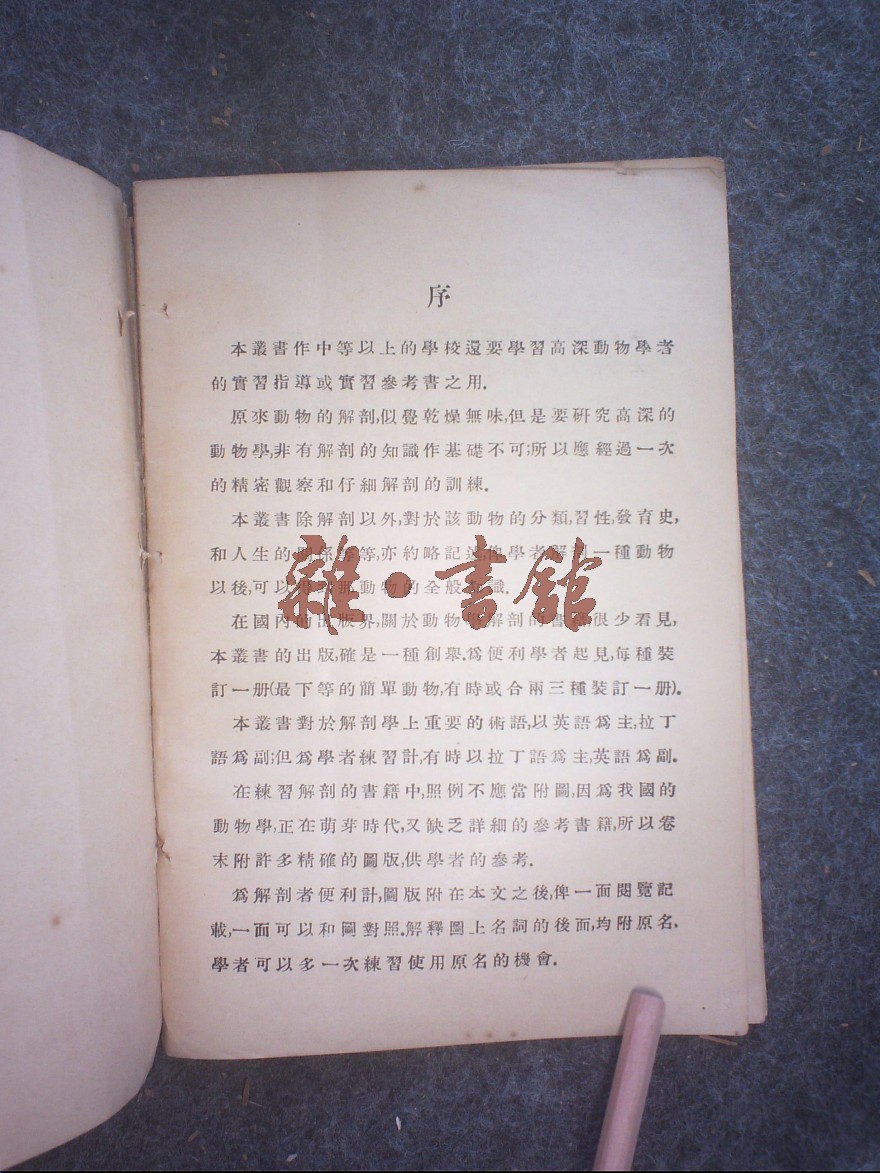 序
本叢書作中等以上的學校還要學習高深動物學者
的實習指導或實習參考書之用.
原來動物的解剖,似覺乾燥無味,但是要研究高深的
動物學,非有解剖的知識作基礎不可;所以應經過一次
的精密觀察和仔細解剖的訓練.
本叢書除解剖以外,對於該動物的分類,習性,發育史,
和人生的關係等等,亦約略記述,俾學者解剖一種動物
以後,可以得到那動物的全般知識.
雜·書館
在國內的出版界,關於動物學解剖的書很少看見,
本叢書的出版,確是一種創舉.爲便利學者起見,每種裝
訂一册(最下等的簡單動物,有時或合兩三種裝訂一册).
本叢書對於解剖學上重要的術語,以英語爲主,拉丁
語爲副;但爲學者練習計,有時以拉丁語爲主,英語爲副.
在練習解剖的書籍中,照例不應當附圖,因爲我國的
動物學,正在萌芽時代,又缺乏詳細的參考書籍,所以卷
末附許多精確的圖版,供學者的參考.
爲解剖者便利計,圖版附在本文之後,俾一面閱覽記
載,一面可以和圖對照.解釋圖上名詞的後面,均附原名,
學者可以多一次練習使用原名的機會.